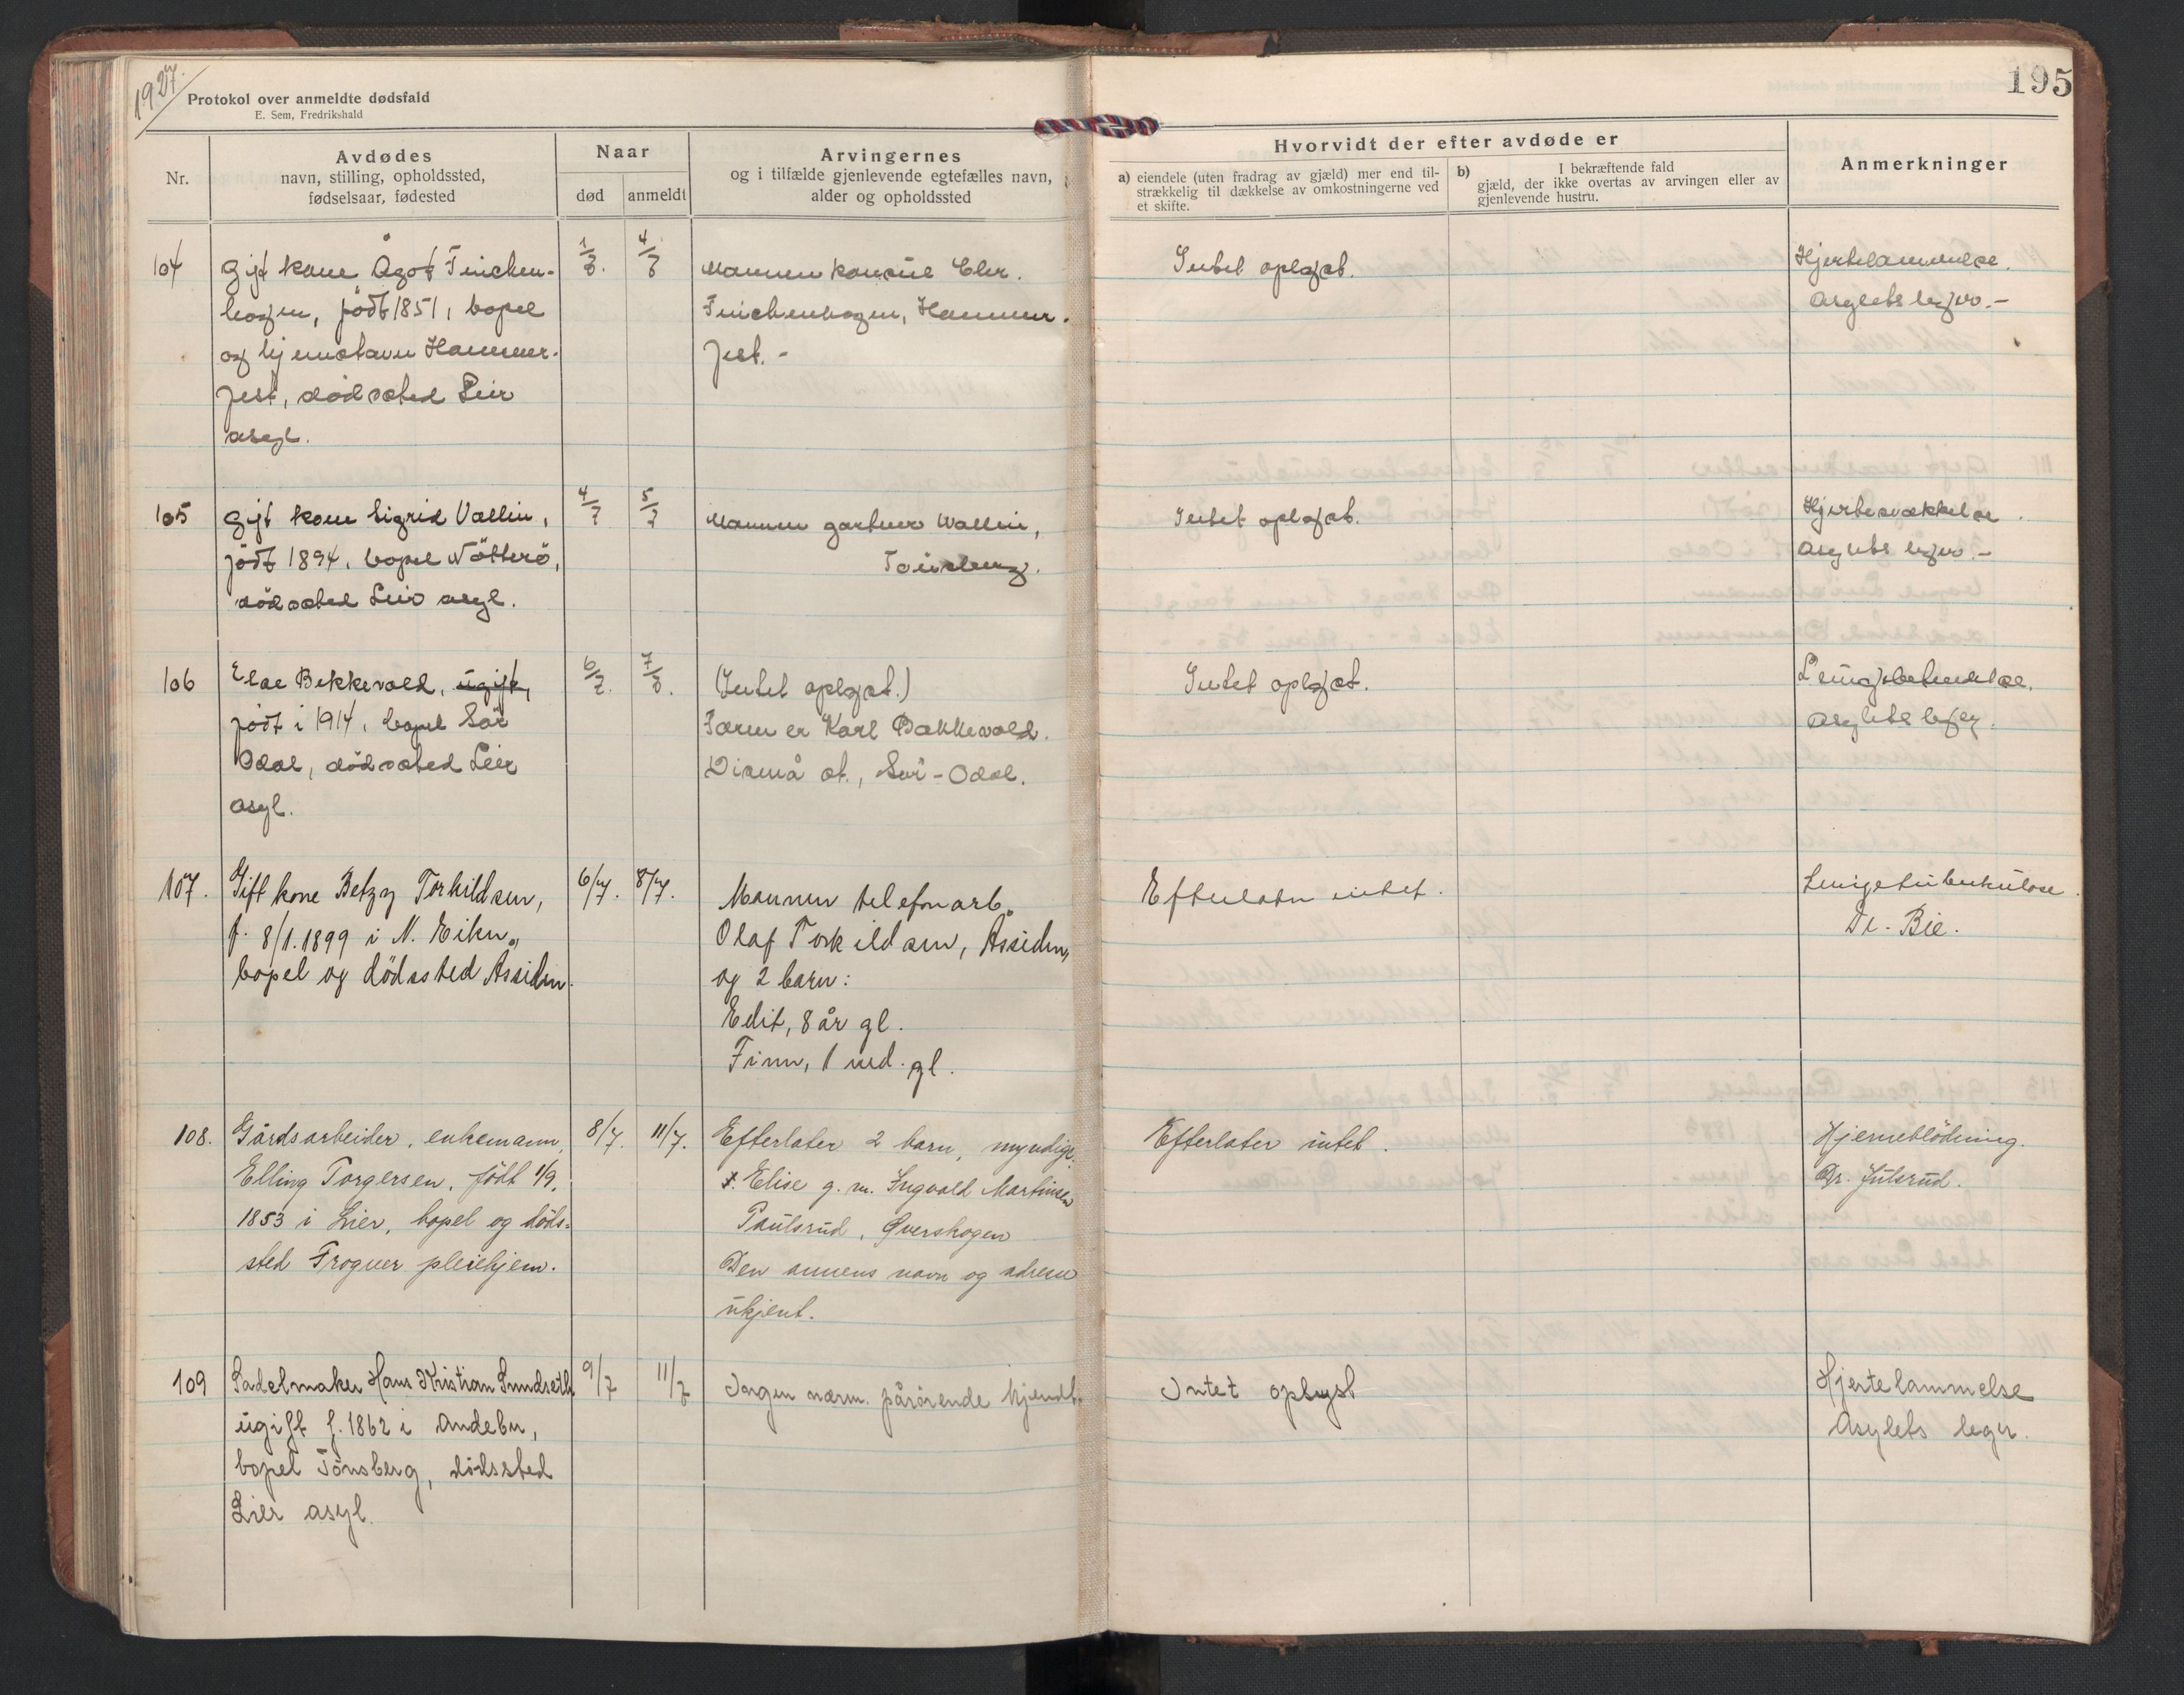 1927.
Protokol over anmeldte dødsfald
E. Sem, Fredrikshald
195
Nr.
Avdødes
navn, stilling, opholdssted,
fødselsaar, fødested
Naar
død
anmeldt
Arvingernes
og i tilfælde gjenlevende egtefælles navn,
alder og opholdssted
Hvorvidt der efter avdøde er
a) eiendele (uten fradrag av gjæld) mer end til-
strækkelig til dækkelse av omkostningerne ved
et skifte.
b) I bekræftende fald
gjæld, der ikke overtas av arvingen eller av
gjenlevende hustru.
Anmerkninger
104
Gift kone Ågot Finchen-
hagen, født 1851, bopel
og hjemstavn Hammer-
fest, dødssted Leir
asyl.
Mannen konsul Chr.
Finchenhagen, Hammer-
fest. -
Intet oplyst.
Hjertelammelse.
Asylets leger. -
105
Gift kone Sigrid Vallin,
født 1894, bopel Nötterö,
dødssted Leir asyl.
4/7
5/7
Mannen gartner Wallin,
Tönsberg.
Intet oplyst.
Hjertesvækkelse.
Asylets leger. -
106
Else Bekkevold, ugift,
født i 1914, bopel Sör
Odal, dødssted Leir
asyl.
6/7.
7/7.
(Intet oplyst.)
Faren er Karl Bakkevold.
Disenå st., Sør-Odal.
Intet oplyst.
Lungebetendelse.
Asylets leger.
107.
Gift kone Betzy Torkildsen,
f. 8/1.1899 i N. Eiker,
bopel og dödssted Åssiden.
6/7.
8/7.
Mannen telefonarb.
Olaf Torkildsen, Åssiden,
og 2 barn:
Edit, 8 år gl.
Finn, 1 md. gl.
Efterlater intet.
Lungetuberkulose.
Dr. Bie.
108.
Gårdsarbeider, enkemann,
Elling Torgersen, født 1/9.
1853 i Lier, bopel og døds-
sted Frogner pleiehjem.
8/7.
11/7.
Efterlater 2 barn, myndige.
Elise g. m. Ingvald Martinsen
Paulsrud, Øverskogen
Den annens navn og adresse
ukjent.
Efterlater intet.
Hjerneblödning.
Dr. Julsrud.
109
Sadelmaker Hans Kristian Sundseth
ugift f. 1862 i Andebu,
bopel Tönsberg, dødssted
Lier asyl.
9/7
11/7
Ingen nærm. pårørende kjendt.
Intet oplyst
Hjertelammelse
Asylets leger.